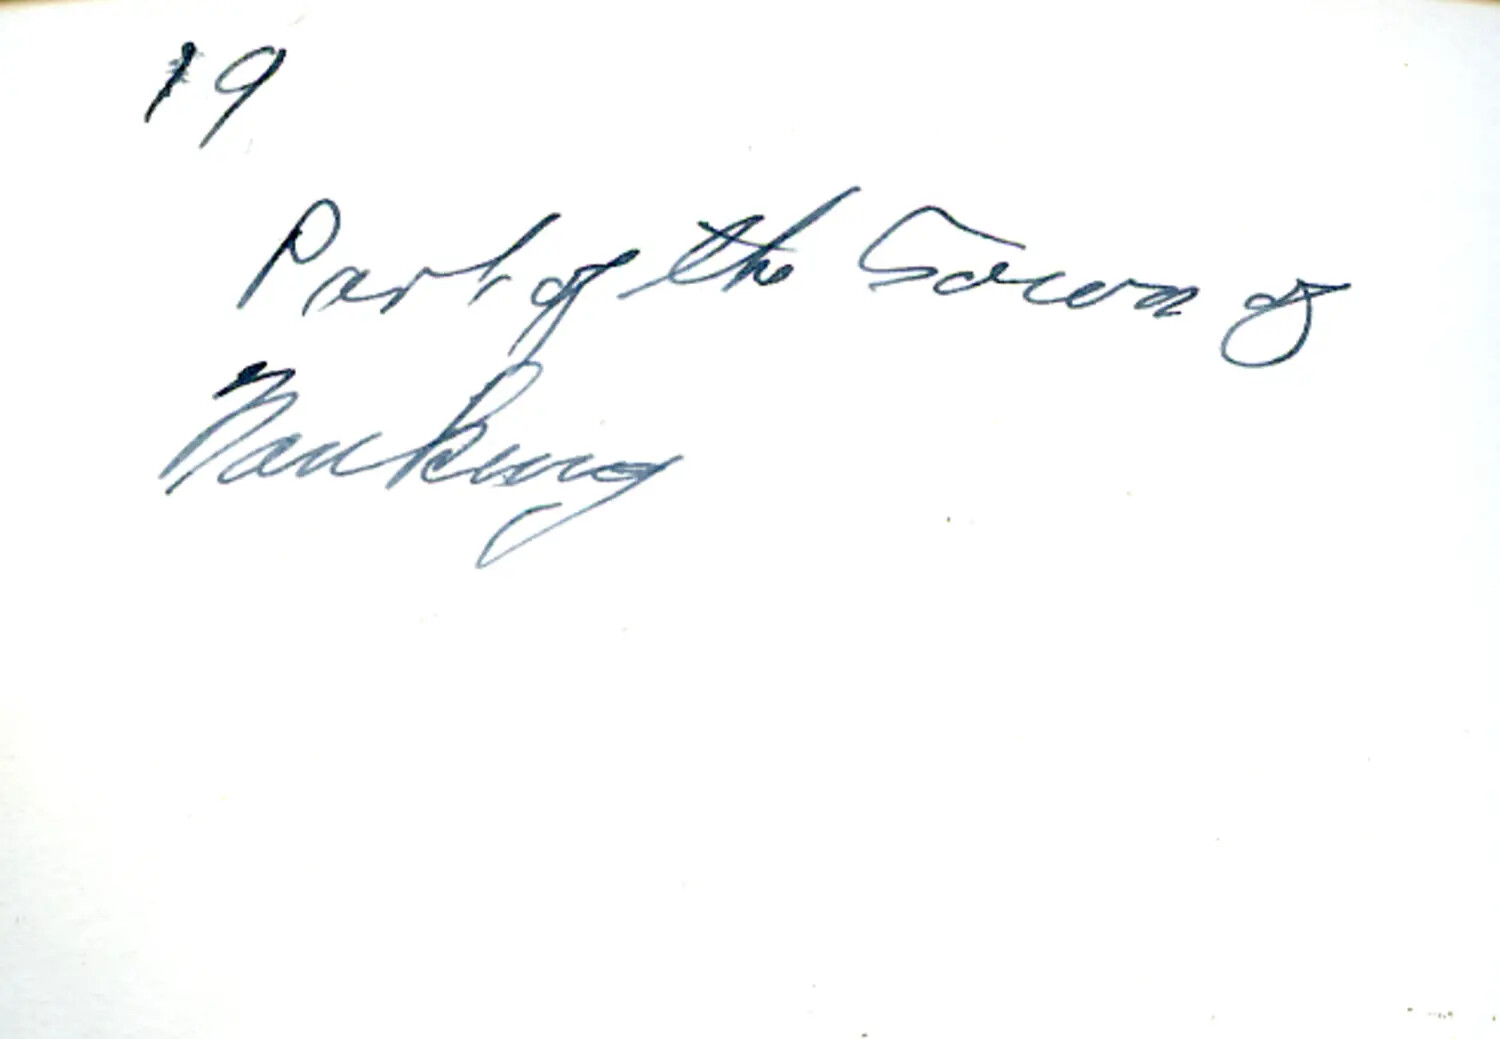 19
Part of the Town of
Nanking